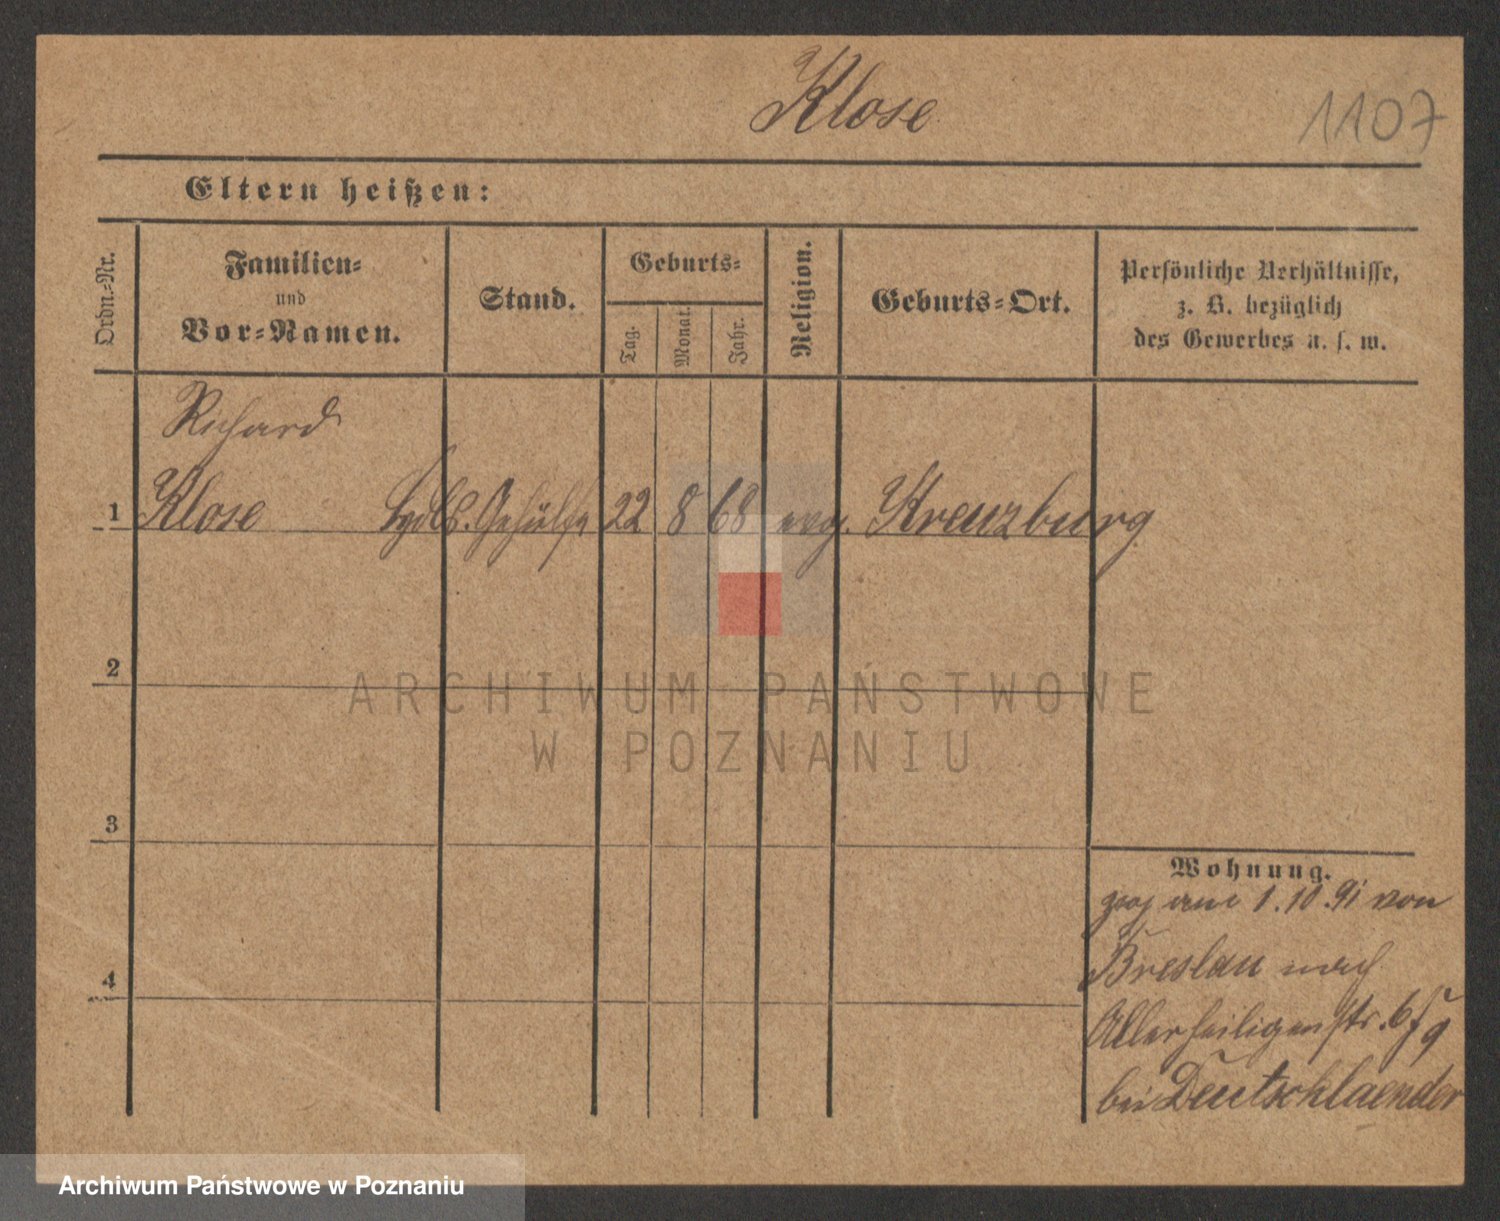 Klose
1107
Eltern heißen:
Ordn.-Nr.
Familien-
und
Vor-Namen.
Stand.
Geburts-
Tag.
Monat.
Jahr.
Religion.
Geburts-Ort.
Persönliche Verhältnisse,
z. B. bezüglich
des Gewerbes u. s. w.
Richard
1 Klose Hdls. Gehülfe 22 8 68 evg. Kreuzburg
2
3
4
Wohnung.
zog am 1.10.91 von
Breslau nach
Allerheiligenstr. 6/7
bei Deutschlaender
ARCHIWUM PAŃSTWOWE
W POZNANIU
Archiwum Państwowe w Poznaniu